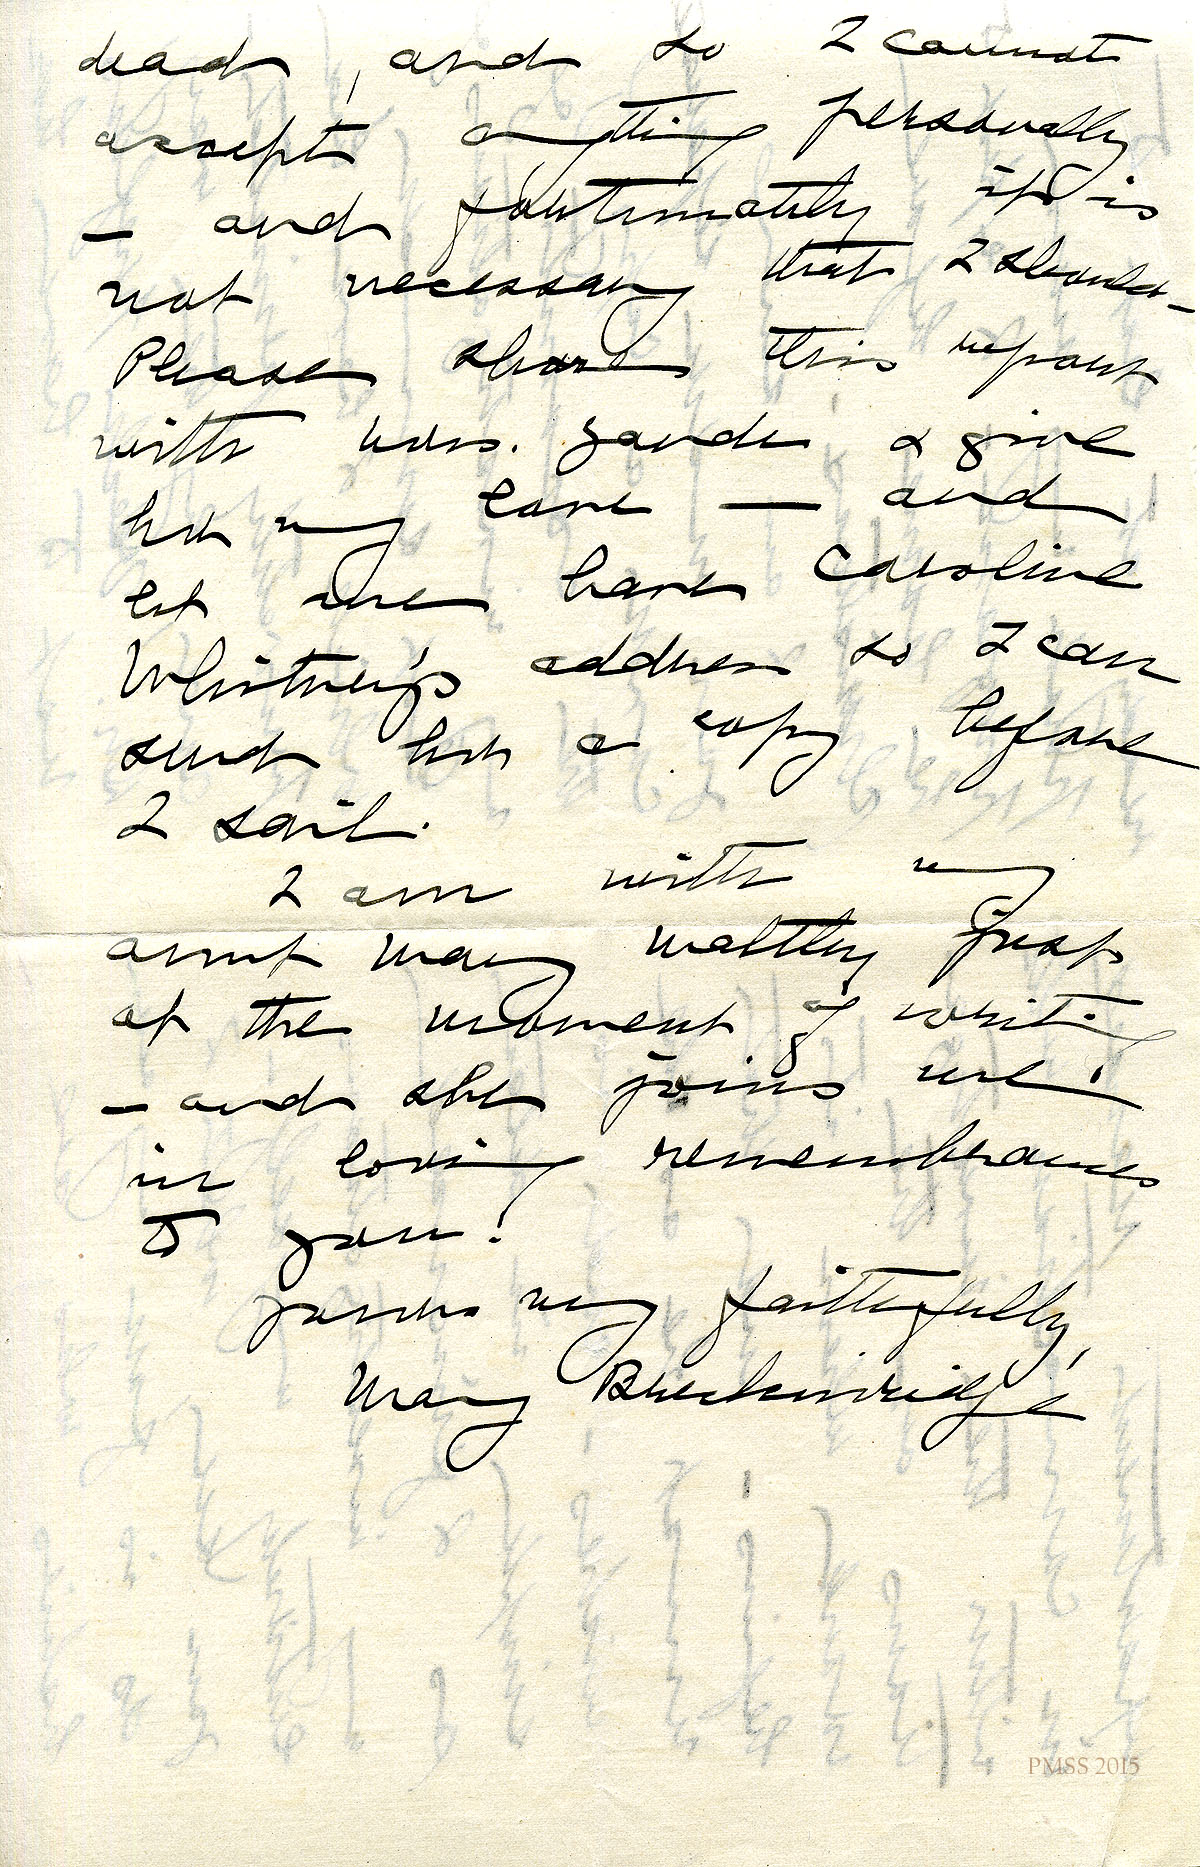 dead, and so I cannot
accept anything personally
— and fortunately it is
not necessary that I should —
Please share this report
with Mrs. Zande & give
her my love — and
let me have Caroline
Whitney's address so I can
send her a copy before
I sail.
I am with my
aunt Mary Maltby just
at the moment of writing
— and she joins me
in loving remembrances
to you!
Yours very faithfully,
Mary Breckinridge
PMSS 2015